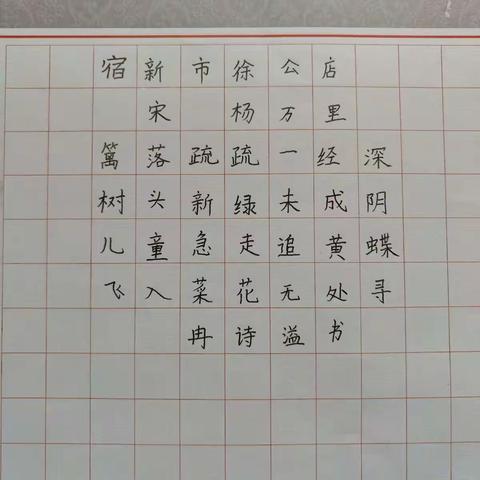 宿新市徐公店
宋 杨万里
篱落疏疏一经深
树头新绿未成阴
儿童急走追黄蝶
飞入菜花无处寻
冉诗溢书